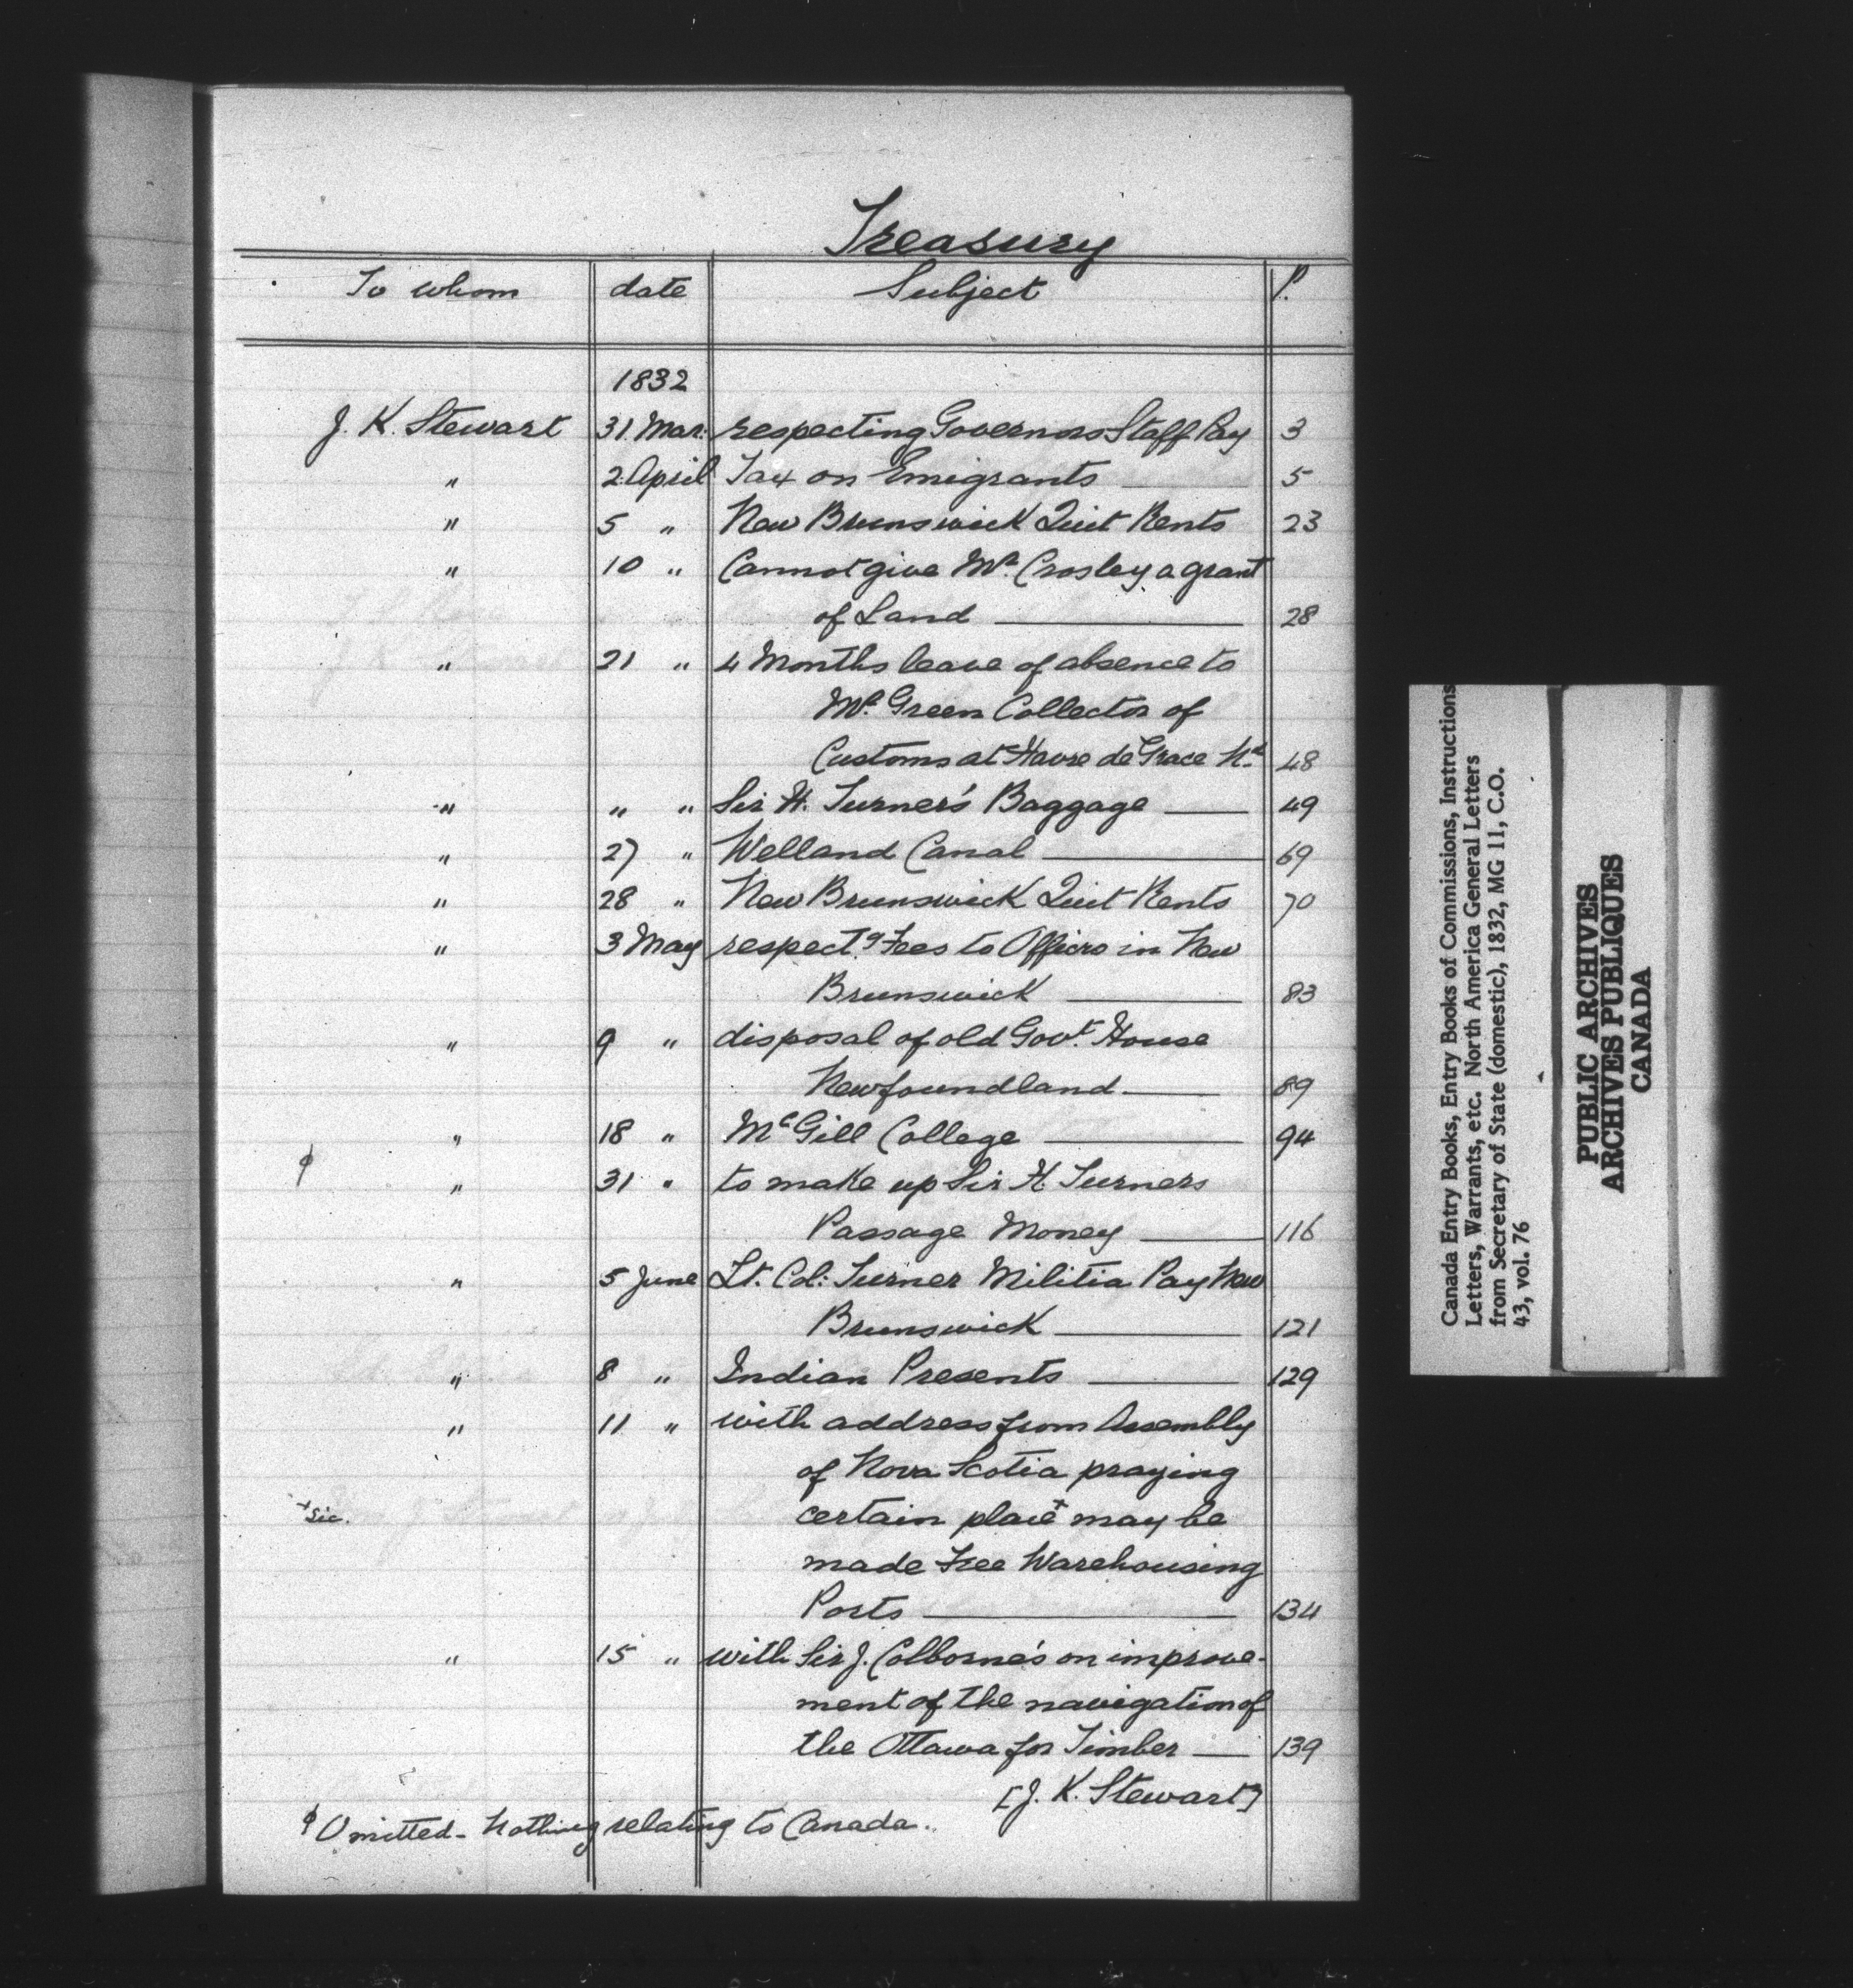 Treasury
To whom date Subject P.
1832
J. K. Stewart 31 Mar: respecting Governors Staff Pay 3
" 2 April Tax on Emigrants 5
" 5 " New Brunswick Quit Rents 23
" 10 " Cannot give Mr. Crosley a grant
of Land 28
" 21 " 4 Months leave of absence to
Mr. Green Collector of
Customs at Havre de Grace Nd. 48
" " " Sir H. Turner's Baggage 49
" 27 " Welland Canal 69
" 28 " New Brunswick Quit Rents 70
" 3 May respectg. Fees to Officrs in New
Brunswick 83
" 9 " disposal of old Govt. House
Newfoundland 89
" 18 " McGill College 94
φ " 31 " to make up Sir H. Turners
Passage Money 116
" 5 June Lt. Col: Turner Militia Pay New
Brunswick 121
" 8 " Indian Presents 129
" 11 " with address from Assembly
of Nova Scotia praying
+ sic. certain place+ may be
made Free Warehousing
Ports 134
" 15 " with Sir J. Colborne's on improve-
ment of the navigation of
the Ottawa for Timber 139
[J. K. Stewart]
φ Omitted - Nothing relating to Canada.
Canada Entry Books, Entry Books of Commissions, Instructions
Letters, Warrants, etc. North America General Letters
from Secretary of State (domestic), 1832, MG 11, C.O.
43, vol. 76
PUBLIC ARCHIVES
ARCHIVES PUBLIQUES
CANADA